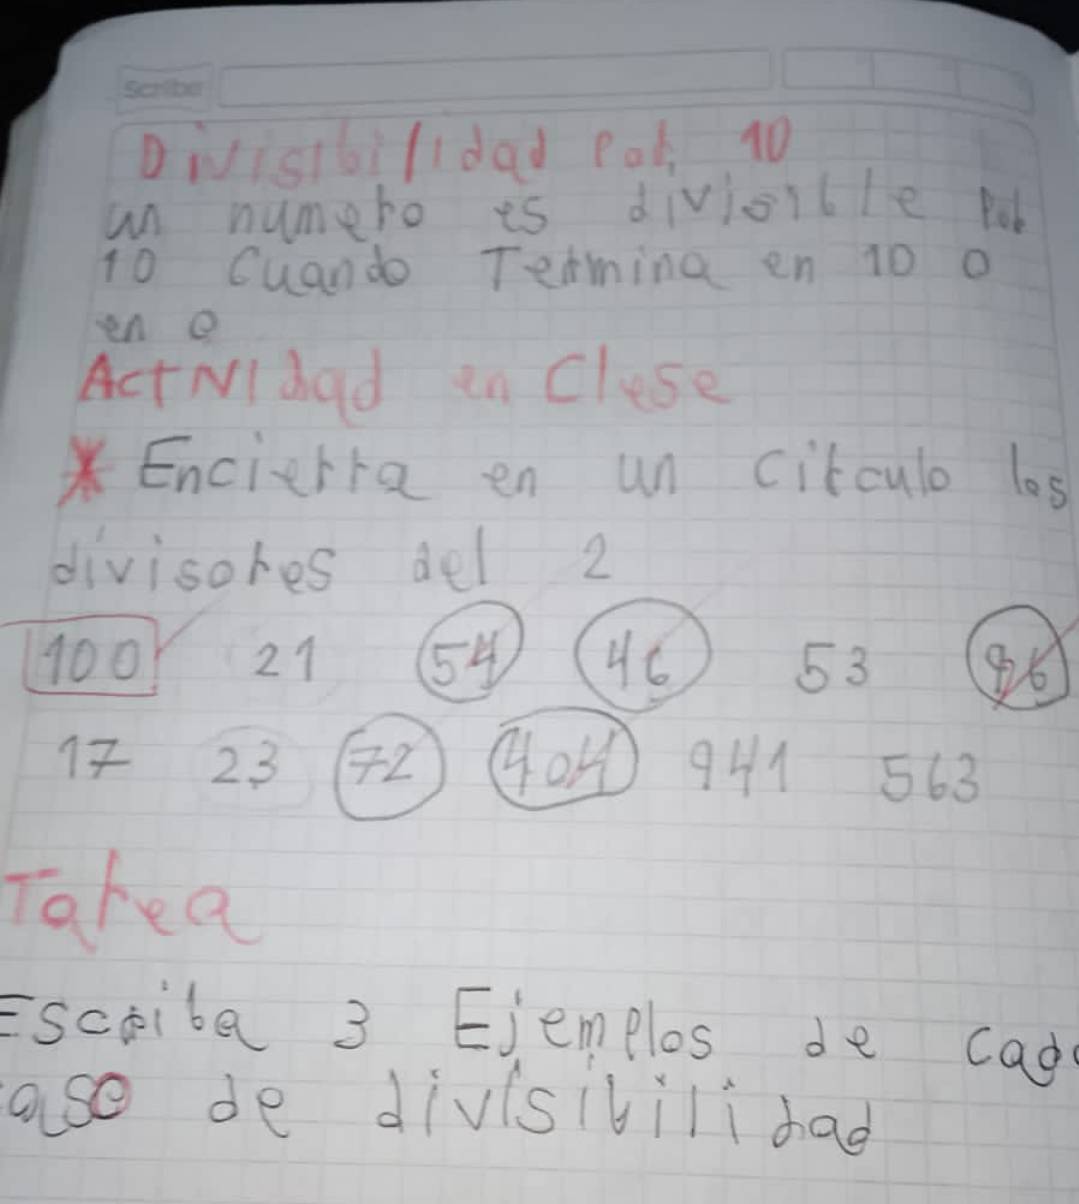 Scribe
Divisibilidad Por, 10
un numero es divisible Por
10 Cuando Termina en 10 o
en 0
Actividad en Clase
* Encierra en un circulo los
divisores del 2
100 21 54 46 53 96
17 23 72 404 941 563
Tarea
Escriba 3 Ejemplos de cad
aso de divisibilidad